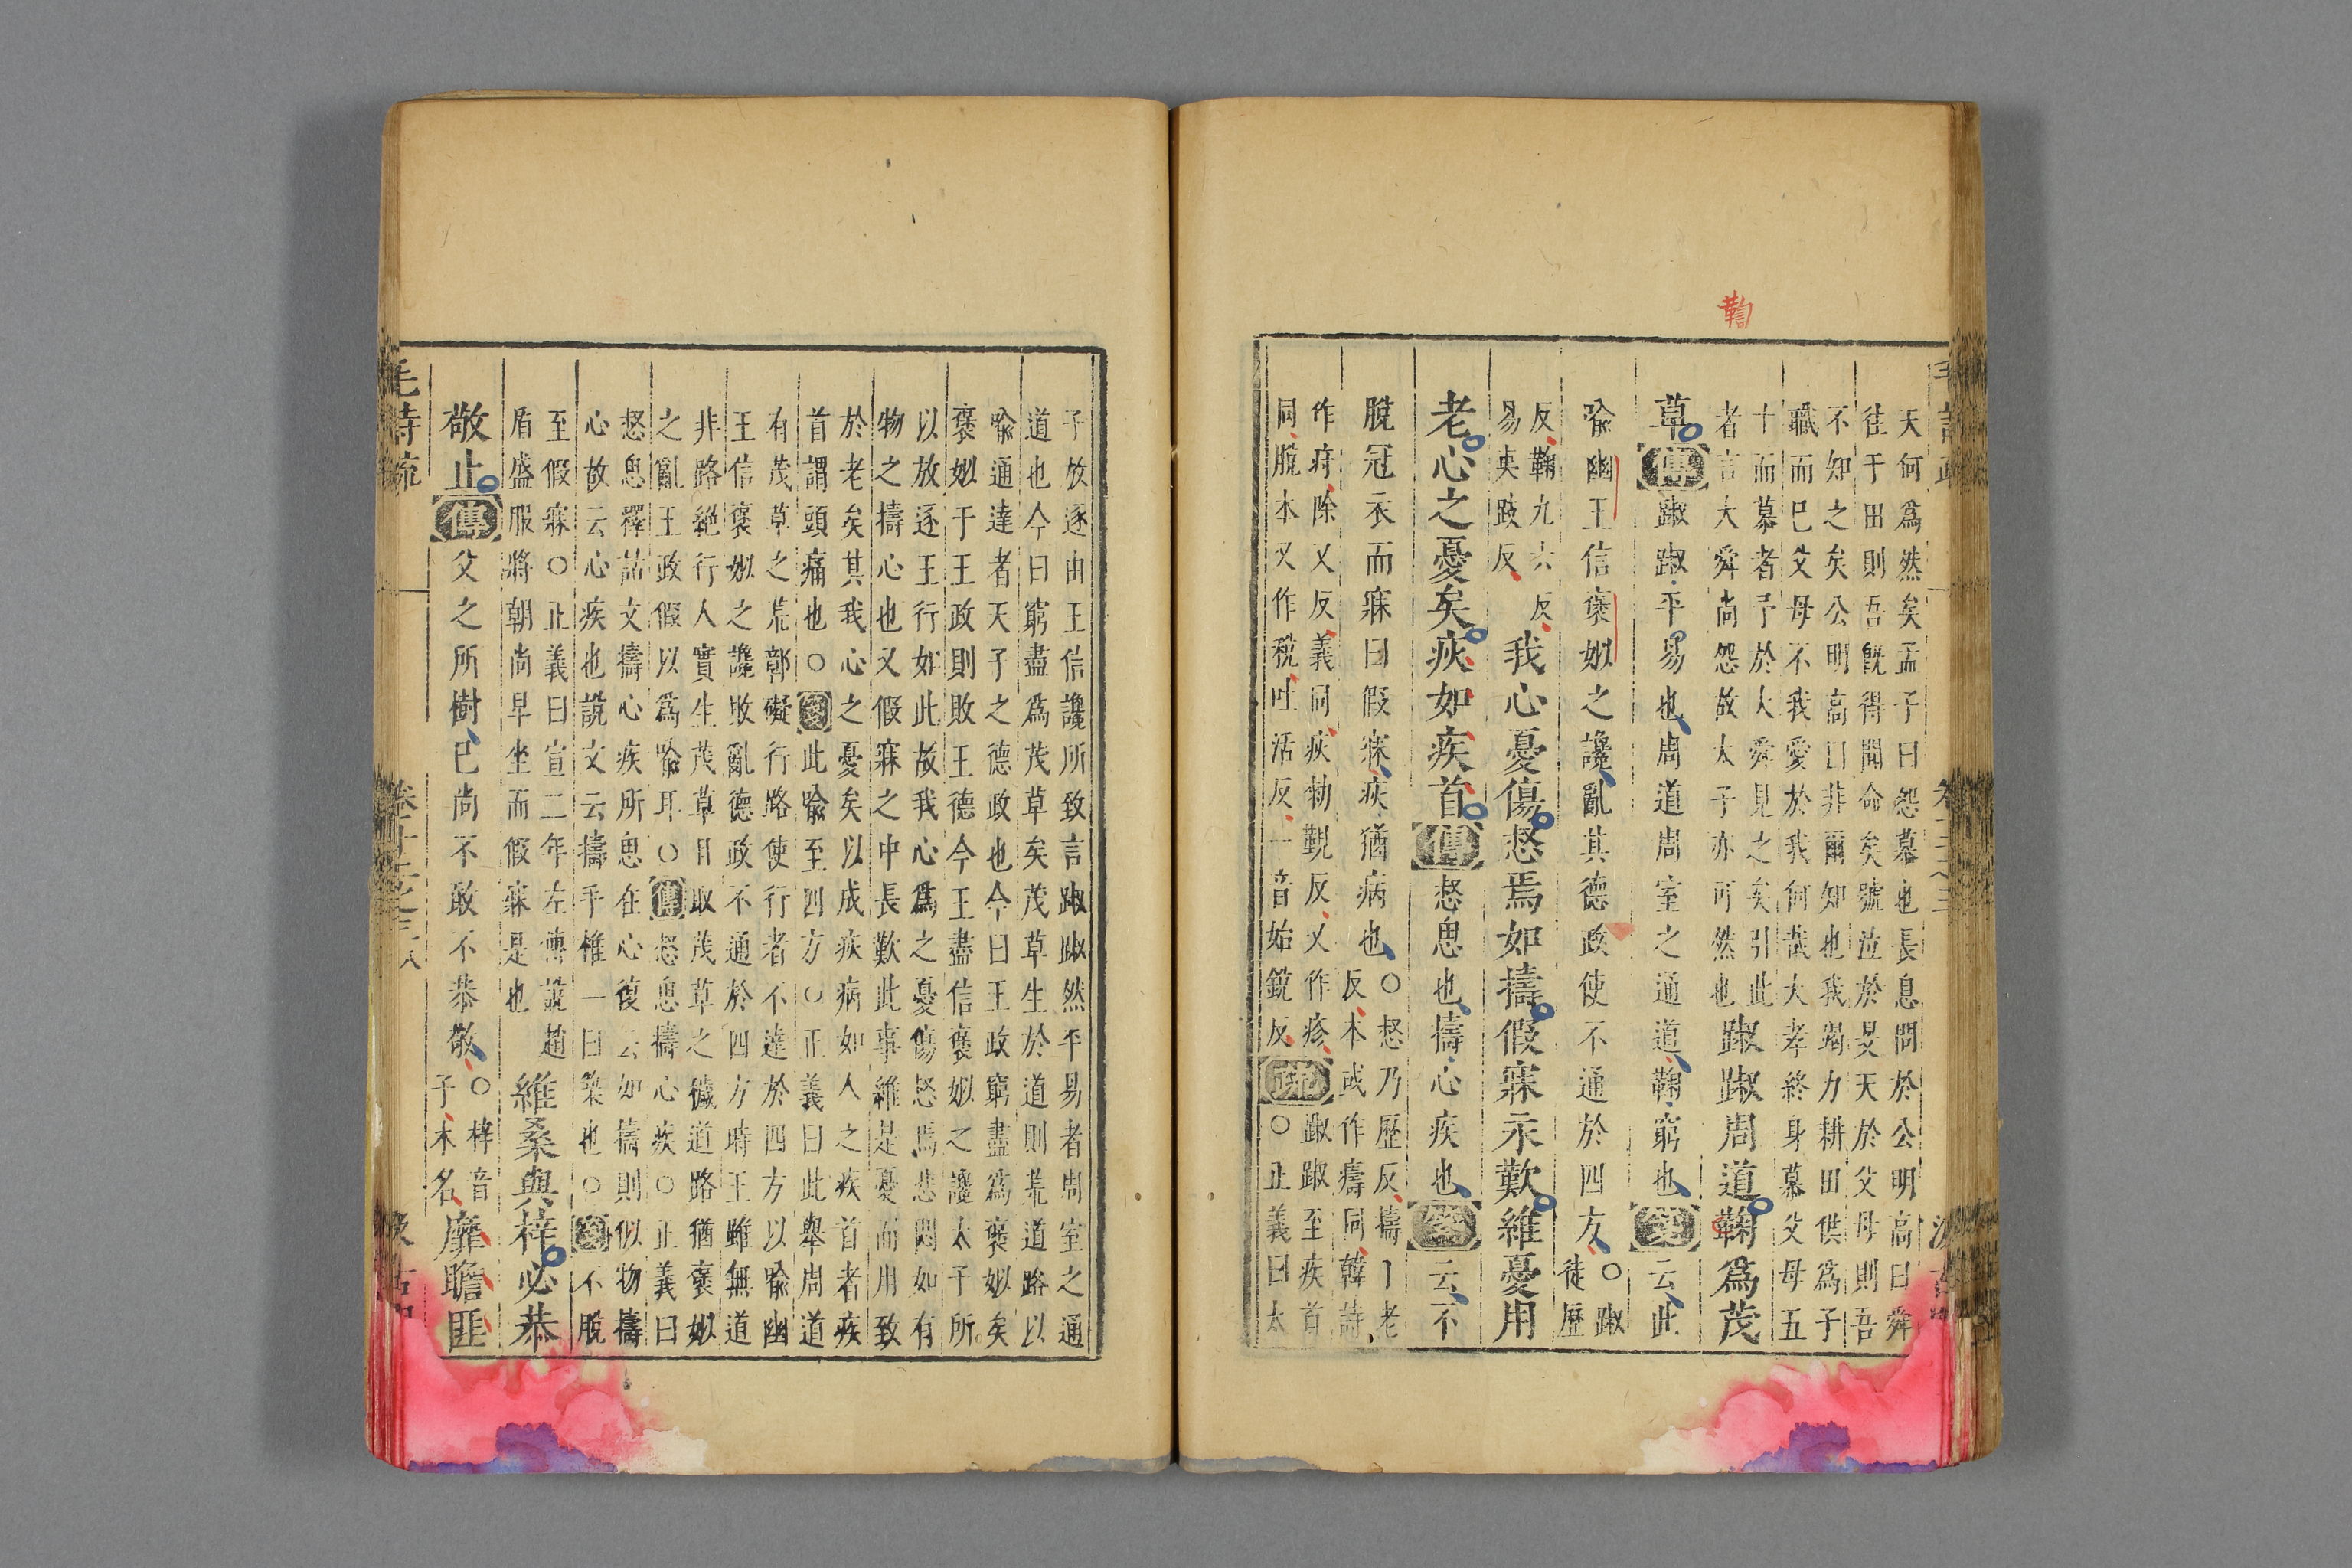 鞫
天何爲然矣孟子曰怨慕也長息問於公明高曰舜
往于田則吾旣得聞命矣號泣於旻天於父母則吾
不知之矣公明高曰非爾知也我竭力耕田供爲子
職而已父母不我愛於我何哉大孝終身慕父母五
十而慕者予於大舜見之矣引此
者言大舜尚怨故太子亦可然也
踧踧周道鞫爲茂
草傳踧踧平易也周道周室之通道鞫窮也箋云此
喩幽王信褒姒之讒亂其德政使不通於四方
○踧
徒歷
反鞫九六反
易夷跂反
我心憂傷惄焉如擣假寐永歎維憂用
老心之憂矣疢如疾首傳惄思也擣心疾也箋云不
脫冠衣而寐曰假寐疢猶病也
○惄乃歷反擣丁老
反本或作𤻮同韓詩
作疛除又反義同疢勑覲反又作疹
同脫本又作稅吐活反一音始銳反
疏
踧踧至疾首
○正義曰太
子放逐由王信讒所致言踧踧然平易者周室之通
道也今曰窮盡爲茂草矣茂草生於道則荒道路以
喩通達者天子之德政也今曰王政窮盡爲褒姒矣
褒姒于王政則敗王德今王盡信褒姒之讒太子所
以放逐王行如此故我心爲之憂傷惄焉悲悶如有
物之擣心也又假寐之中長歎此事維是憂而用致
於老矣其我心之憂矣以成疢病如人之疾首者疾
首謂頭痛也○箋此喩至四方○正義曰此舉周道
有茂草之荒鄣礙行路使行者不達於四方以喩幽
王信褒姒之讒敗亂德政不通於四方時王雖無道
非路絕行人實生茂草日取茂草之穢道路猶褒姒
之亂王政假以爲喩耳○傳惄思擣心疾○正義曰
惄思釋詁文擣心疾所思在心復云如擣則似物擣
心故云心疾也說文云擣手椎一曰築也○箋不脫
至假寐○正義曰宣二年左傳說趙
盾盛服將朝尚早坐而假寐是也
維桑與梓必恭
敬止傳父之所樹已尚不敢不恭敬
○梓音
子木名
靡瞻匪
毛詩疏